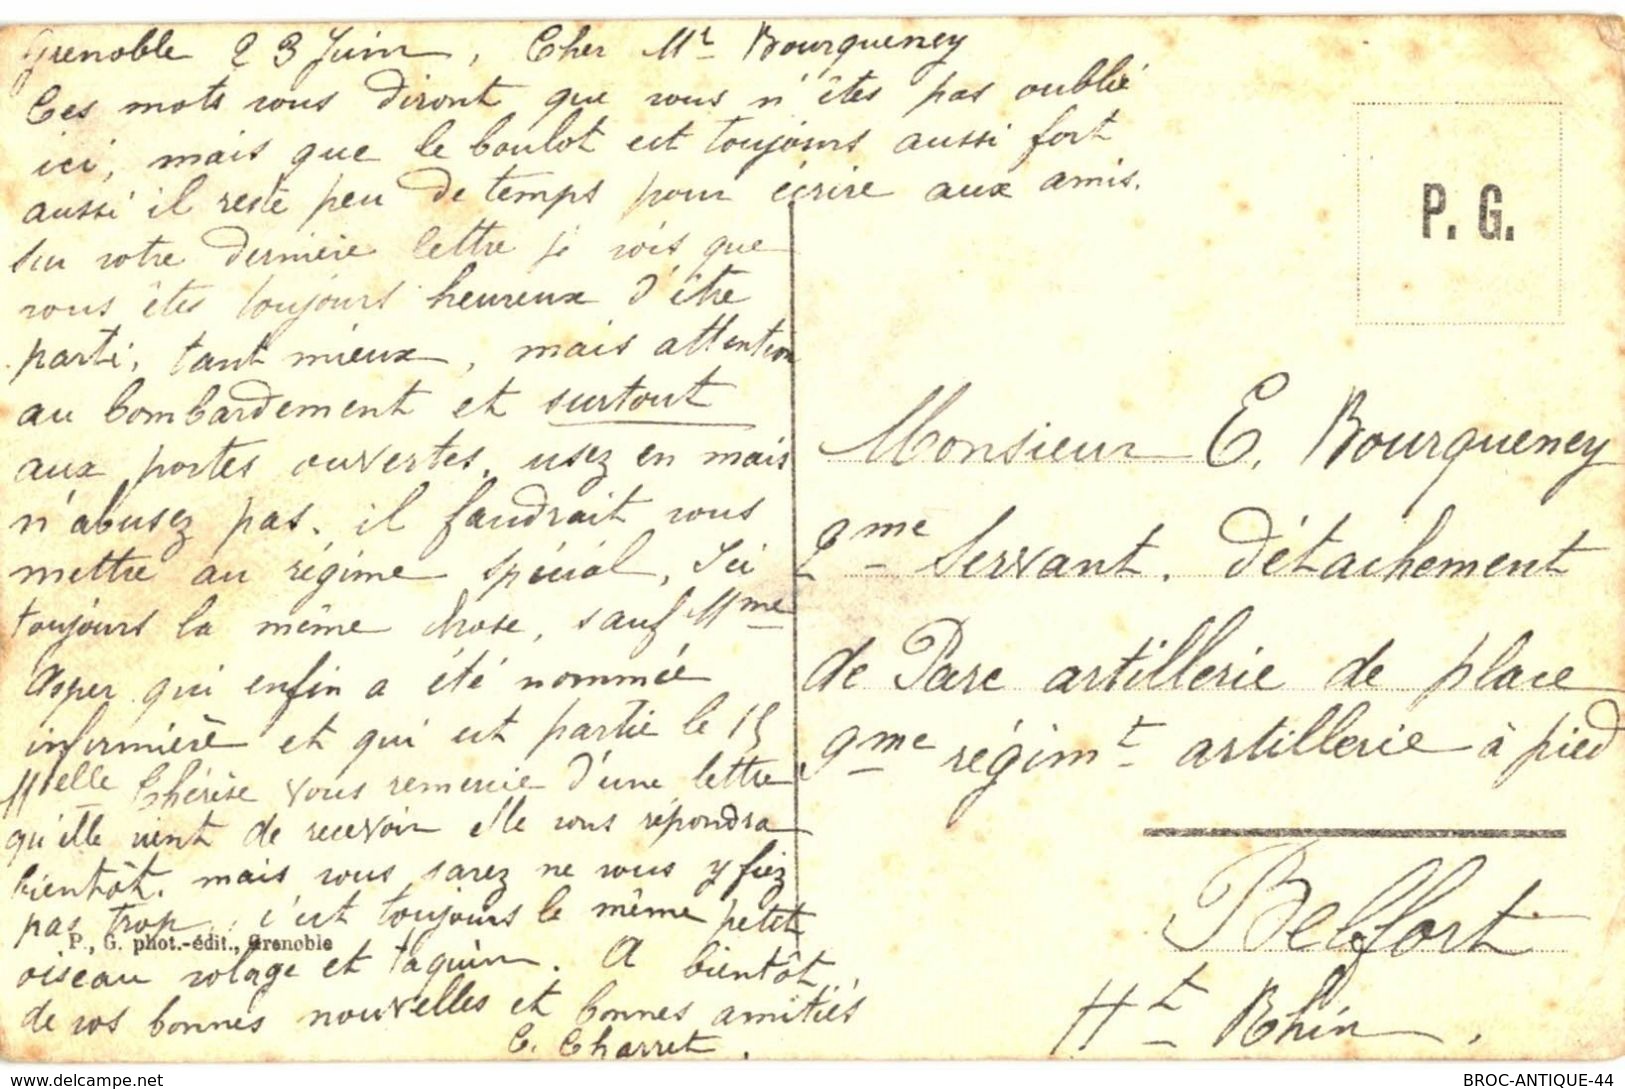 Grenoble 23 Juin, Cher Mr Bourqueney
Ces mots vous diront que vous n'êtes pas oublié
ici, mais que le boulot est toujours aussi fort
aussi il reste peu de temps pour écrire aux amis.
Sur votre dernière lettre je vois que
vous êtes toujours heureux d'être
parti, tant mieux, mais attention
au bombardement et surtout
aux portes ouvertes, usez en mais
n'abusez pas. il faudrait vous
mettre au régime spécial, Ici
toujours la même chose, sauf Mme
Asper qui enfin a été nommée
infirmière et qui est partie le 15
Melle Thérèse vous remercie d'une lettre
qu'elle vient de recevoir elle vous répondra
bientôt, mais vous savez ne vous y fiez
pas trop, c'est toujours le même petit
oiseau volage et taquin. A bientôt
de vos bonnes nouvelles et bonnes amitiés
E. Charret.
P., G. phot.-édit., Grenoble
P. G.
Monsieur E. Bourqueney
2me Servant. détachement
de Parc artillerie de place
9me régimt artillerie à pied
Belfort
Ht Rhin.
BROC-ANTIQUE-44